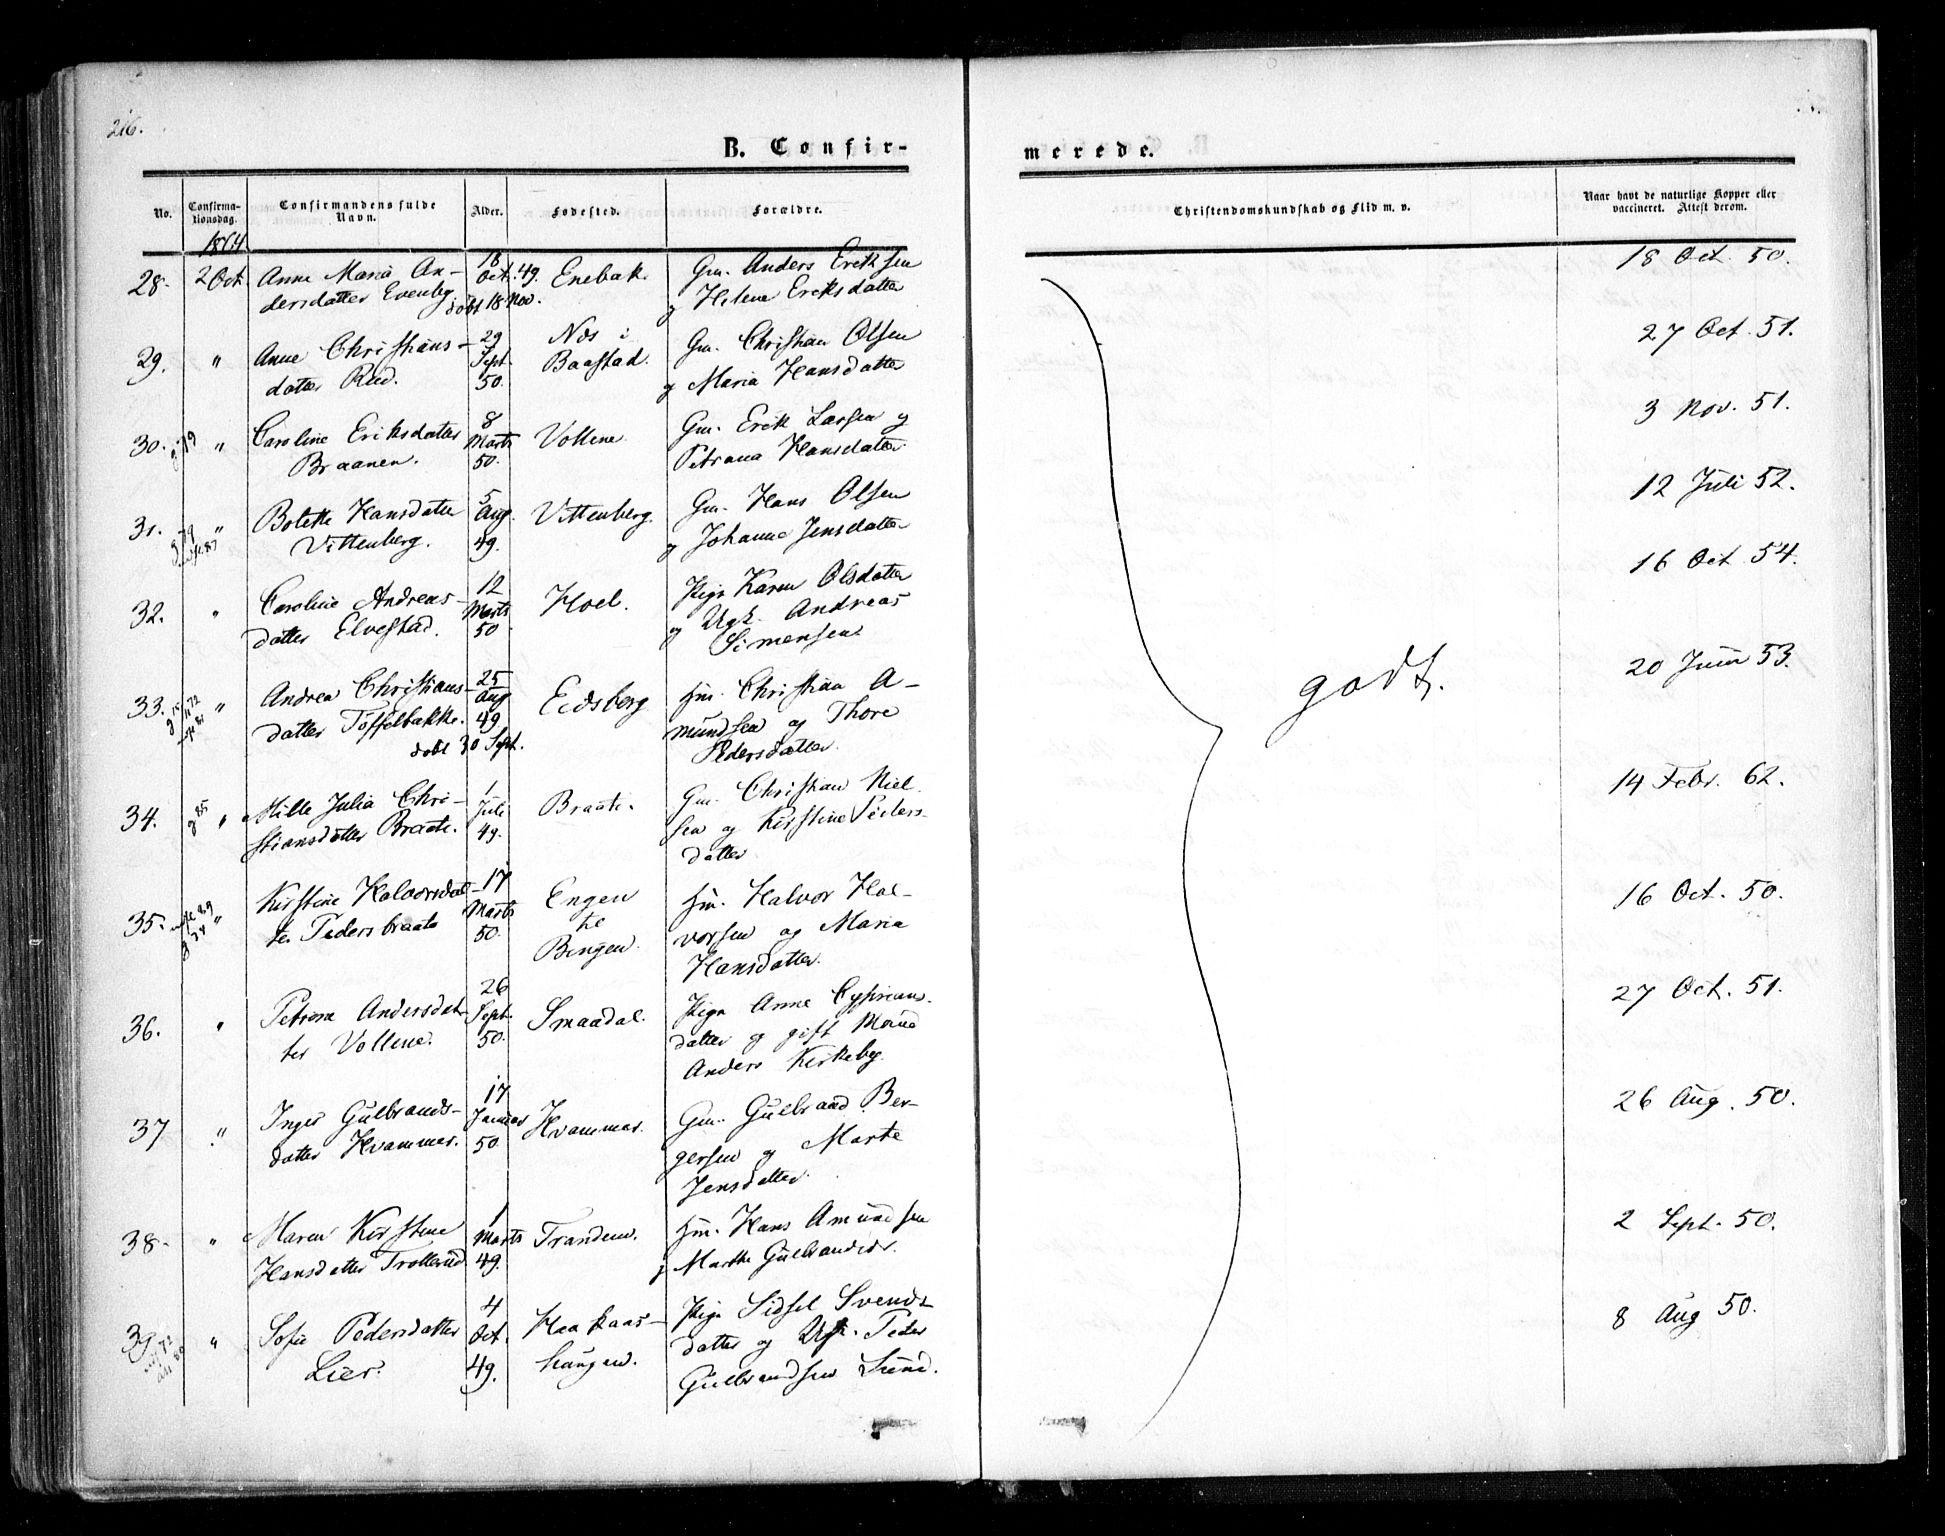 216.
B. Confir-
merede.
No.
Confirma-
tionsdag.
Confirmandens fulde
Navn.
Alder.
Fødested.
Forældre.
Christendomskundskab og Flid m. v.
Naar havt de naturlige Kopper eller
vaccineret. Attest derom.
1864
28. 2 Oct. Anne Maria An- 18 Oct. 49. Enebak. Gm. Anders Eriksen 18 Oct. 50.
dersdatter Evenby døbt 18 Nov. og Helene Eriksdatter
29. " Anne Christians- 29 Næs i Gm. Christian Olsen 27 Oct. 51.
datter Rud. Sept. 50. Baastad. og Maria Hansdatter
30. " Caroline Eriksdatter 8 Marts Vollene. Gm. Erik Larsen og 3 Nov. 51.
Braanen. 50. Petrana Hansdatter
31. " Bolette Hansdatter 5 Aug. Vittenberg. Gm. Hans Olsen 12 Juli 52.
Vittenberg. 49. og Johanne Jensdatter
32. " Caroline Andreas- 12 Marts Hoel. Pige Karen Olsdatter 16 Oct. 54.
datter Elvestad. 50 og Ugk. Andreas
Simensen
33. " Andrea Christians- 25 Aug Eidsberg Hm. Christian A- 20 Juni 53.
datter Tøffelbakke. 49 mundsen og Thore
døbt 30 Sept. Pedersdatter
godt.
34. g 85 " Mille Julia Chri- 1 Juli Braate. Gm. Christian Niel- 14 Febr. 62.
stiansdatter Braate. 49. sen og Kirstine Peders-
datter
35. " Kirstine Halvorsdat- 17 Marts Engen Hm. Halvor Hal- 16 Oct. 50.
ter Pedersbraate 50. te vorsen og Maria
Bingen. Hansdatter.
36. " Petrine Andersdat- 26 Sept. Smaadal. Pige Anne Cyprians- 27 Oct. 51.
ter Vollene. 50. datter og gift Mand
Anders Kirkeby.
37 " Inger Gulbrands- 17 Januar Hvammer. Gm. Gulbrand Ber- 26 Aug. 50.
datter Hvammer. 50 gersen og Marte
Jensdatter
38. " Maren Kirstine 1 Marts Trandem. Hm. Hans Amundsen 2 Sept. 50.
Hansdatter Trollerud 49. og Marthe Gulbrandsdr.
39. " Sofie Pedersdatter 4 Oct. Haakaas- Pige Sidsel Svends- 8 Aug 50.
Lier. 49. haugen. datter og Ugk. Peder
Gulbrandsen Lund.